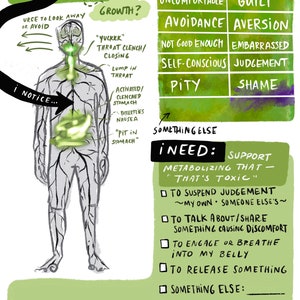 GROWTH?
URGE TO LOOK AWAY
OR AVOID
"YUCKKK"
THROAT CLENCH/
CLOSING
LUMP IN
THROAT
I NOTICE...
ACTIVATED/
CLENCHED
STOMACH
NAUSEA
"PIT IN
STOMACH"
UNCOMFORTABLE
GUILT
AVOIDANCE
AVERSION
NOT GOOD ENOUGH
EMBARRASSED
SELF-CONSCIOUS
JUDGEMENT
PITY
SHAME
SOMETHING ELSE
I NEED:
SUPPORT
METABOLIZING THAT—
"THAT'S TOXIC"
TO SUSPEND JUDGEMENT
~ MY OWN · SOMEONE ELSE'S ~
TO TALK ABOUT/SHARE
SOMETHING CAUSING DISCOMFORT
TO ENGAGE OR BREATHE
INTO MY BELLY
TO RELEASE SOMETHING
SOMETHING ELSE: